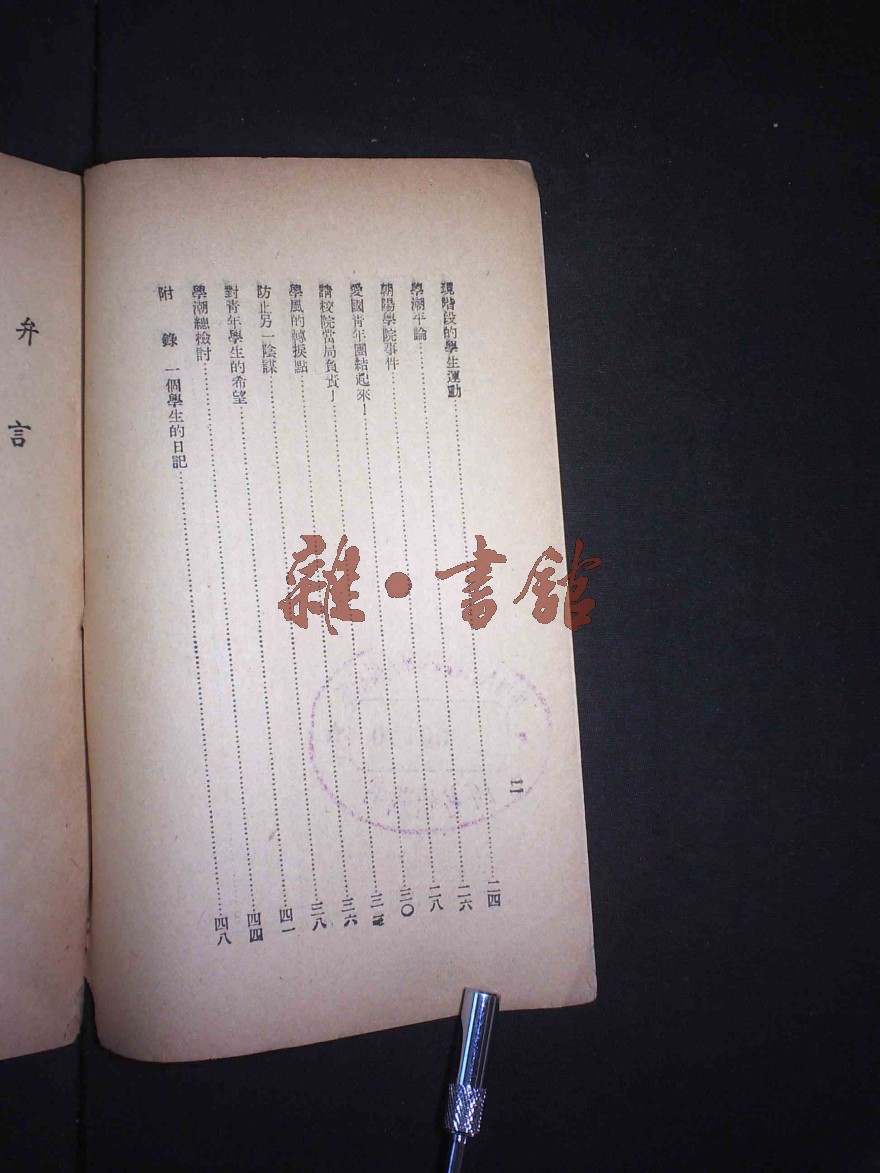 二
現階段的學生運動……二四
學潮平論……二六
朝陽學院事件……二八
愛國青年團結起來！……三〇
請校院當局負責！……
學風的轉捩點……三六
防止另一陰謀……三八
對青年學生的希望……四一
學潮總檢討……四四
附錄 一個學生的日記……四八
弁言
雜·書館